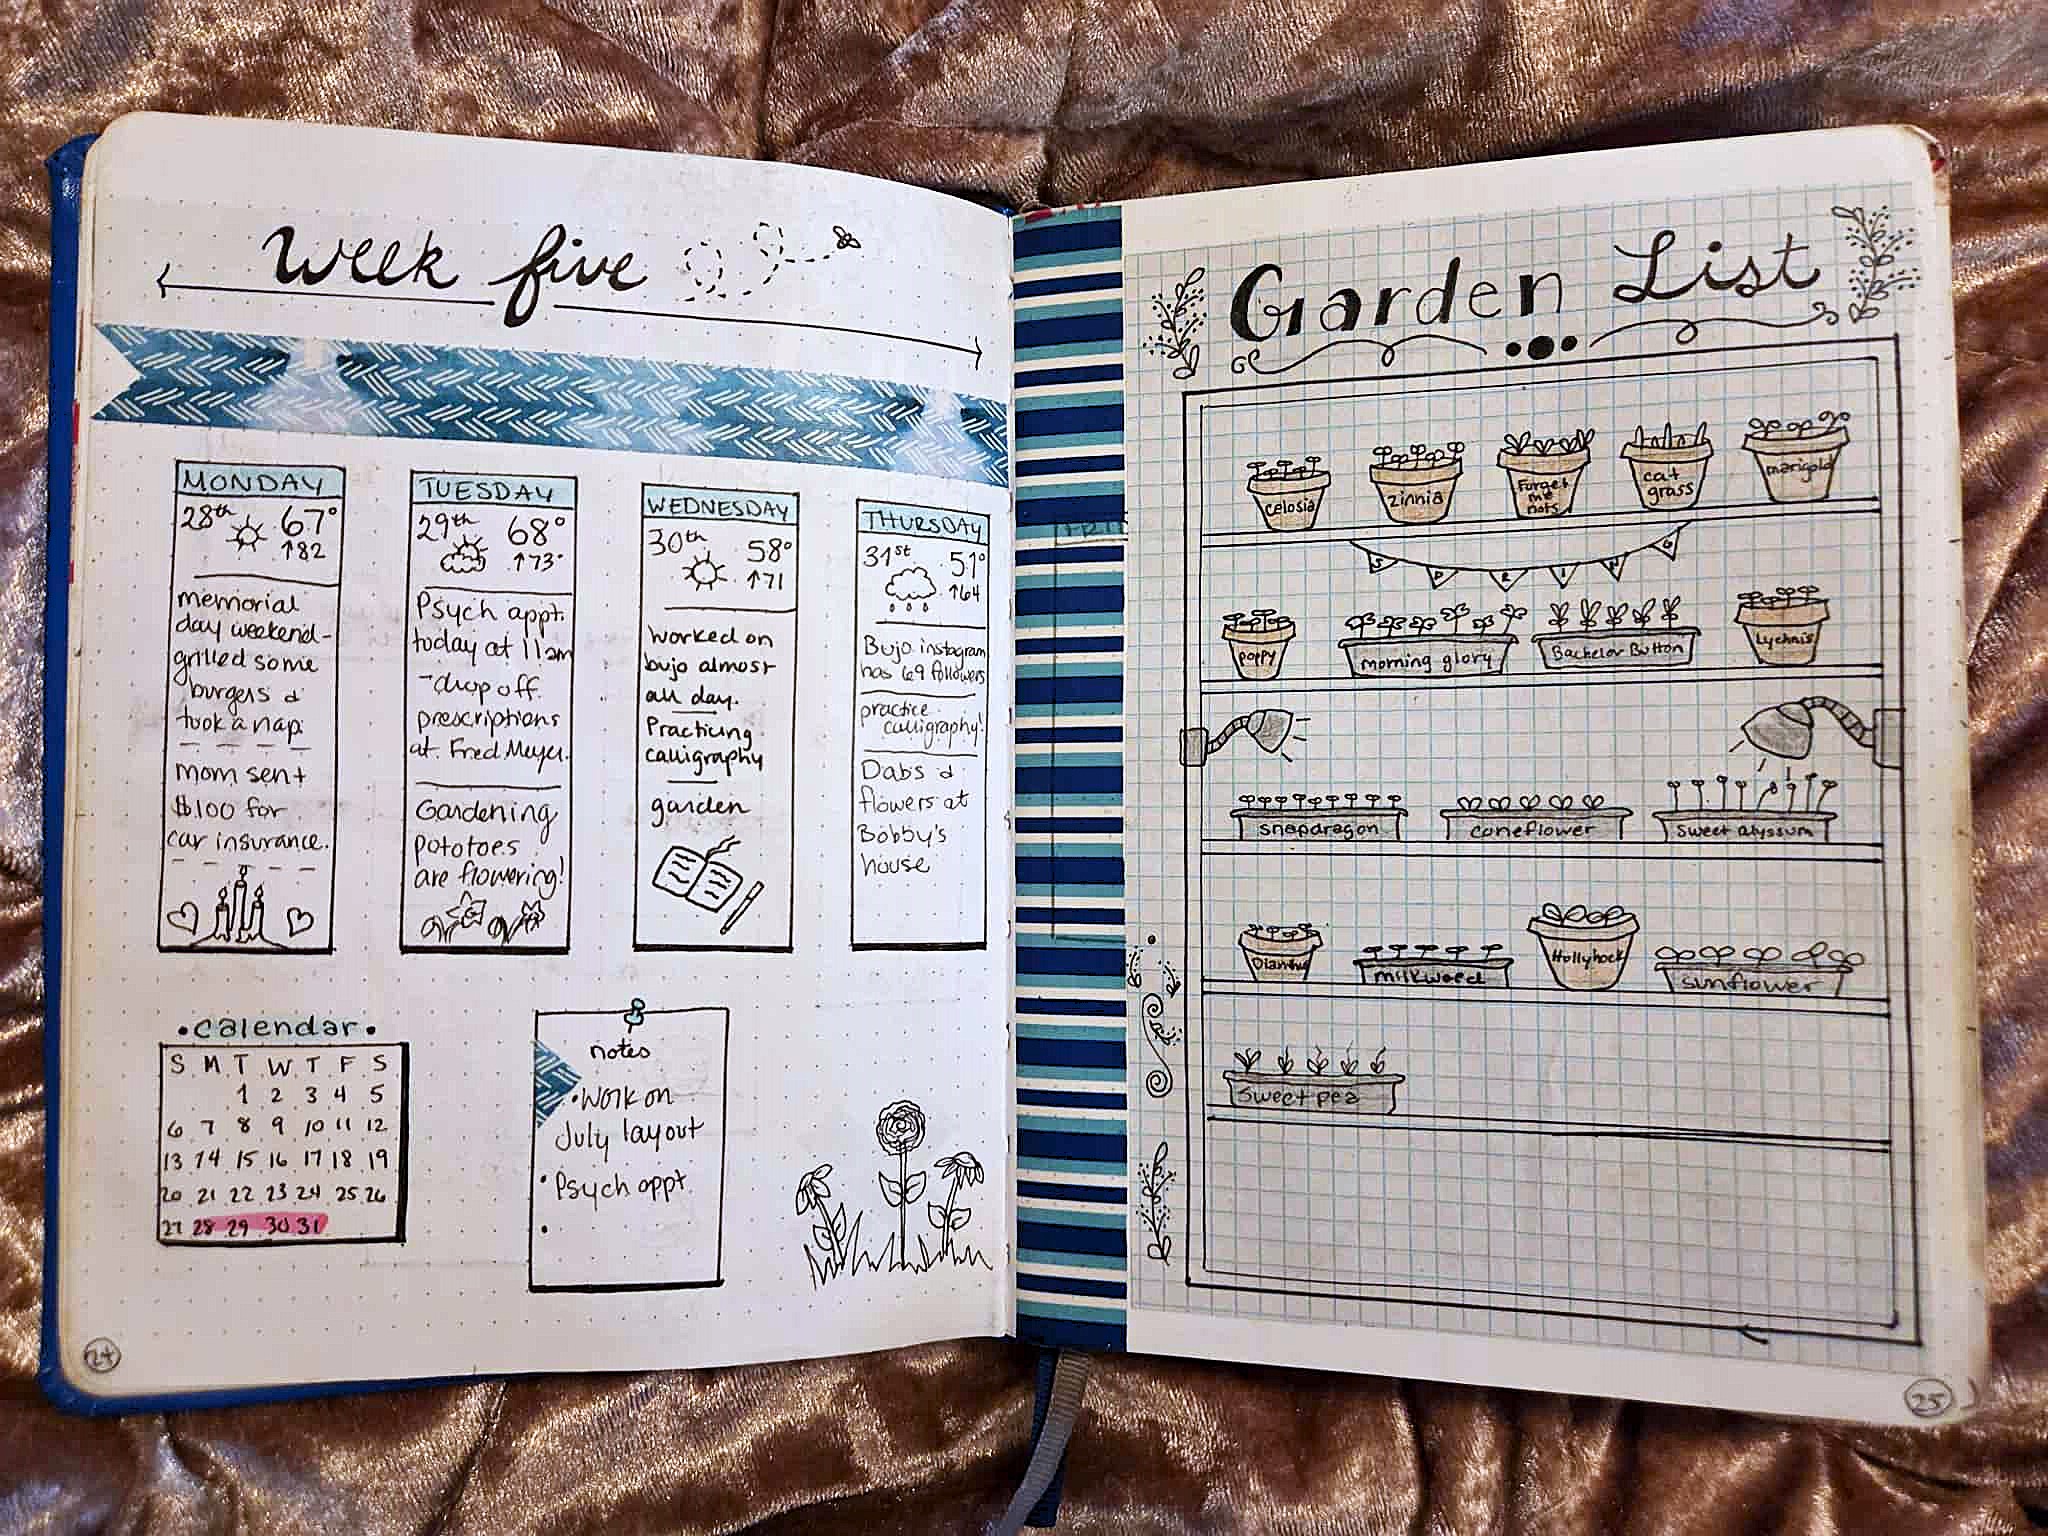 Week five
MONDAY
28th 67°
↑82
memorial
day weekend-
grilled some
burgers &
took a nap.
mom sent
$100 for
car insurance.
TUESDAY
29th 68°
↑73°
Psych appt.
today at 11am
-drop off
prescriptions
at Fred Meyer.
Gardening
pototoes
are flowering!
WEDNESDAY
30th 58°
↑71
worked on
bujo almost
all day.
Practicing
calligraphy
garden
THURSDAY
31st 51°
↑64
Bujo instagram
has 69 followers
practice
calligraphy!
Dabs &
flowers at
Bobby's
house
•calendar•
S M T W T F S
1 2 3 4 5
6 7 8 9 10 11 12
13 14 15 16 17 18 19
20 21 22 23 24 25 26
27 28 29 30 31
notes
•Work on
July layout
•Psych appt.
•
24
Garden List
celosia
zinnia
Forget
me
nots
cat
grass
marigold
SPRING
poppy
morning glory
Bachelor Button
Lychnis
snapdragon
coneflower
sweet alyssum
Dianthus
milkweed
Hollyhock
sunflower
Sweet pea
25